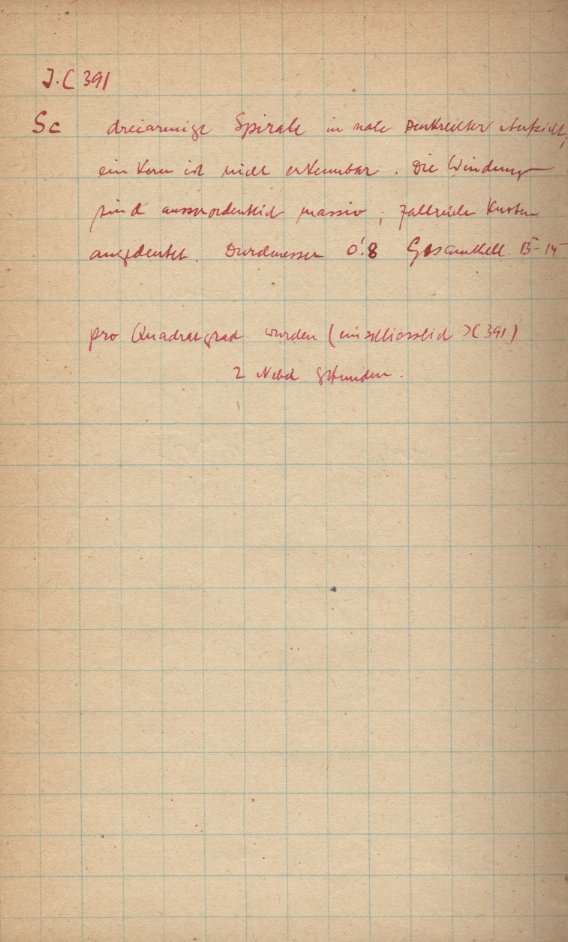 J.C 391
Sc dreiarmige Spirale in nahe senkrechter Aufsicht,
ein Kern ist nicht erkennbar. Die Windungen
sind ausserordentlich massiv, zahlreiche Knoten
angedeutet. Durchmesser 0!8 Gesamthell. 13-14
pro Quadratgrad wurden (einschliesslich JC 391)
2 Nebel gefunden.